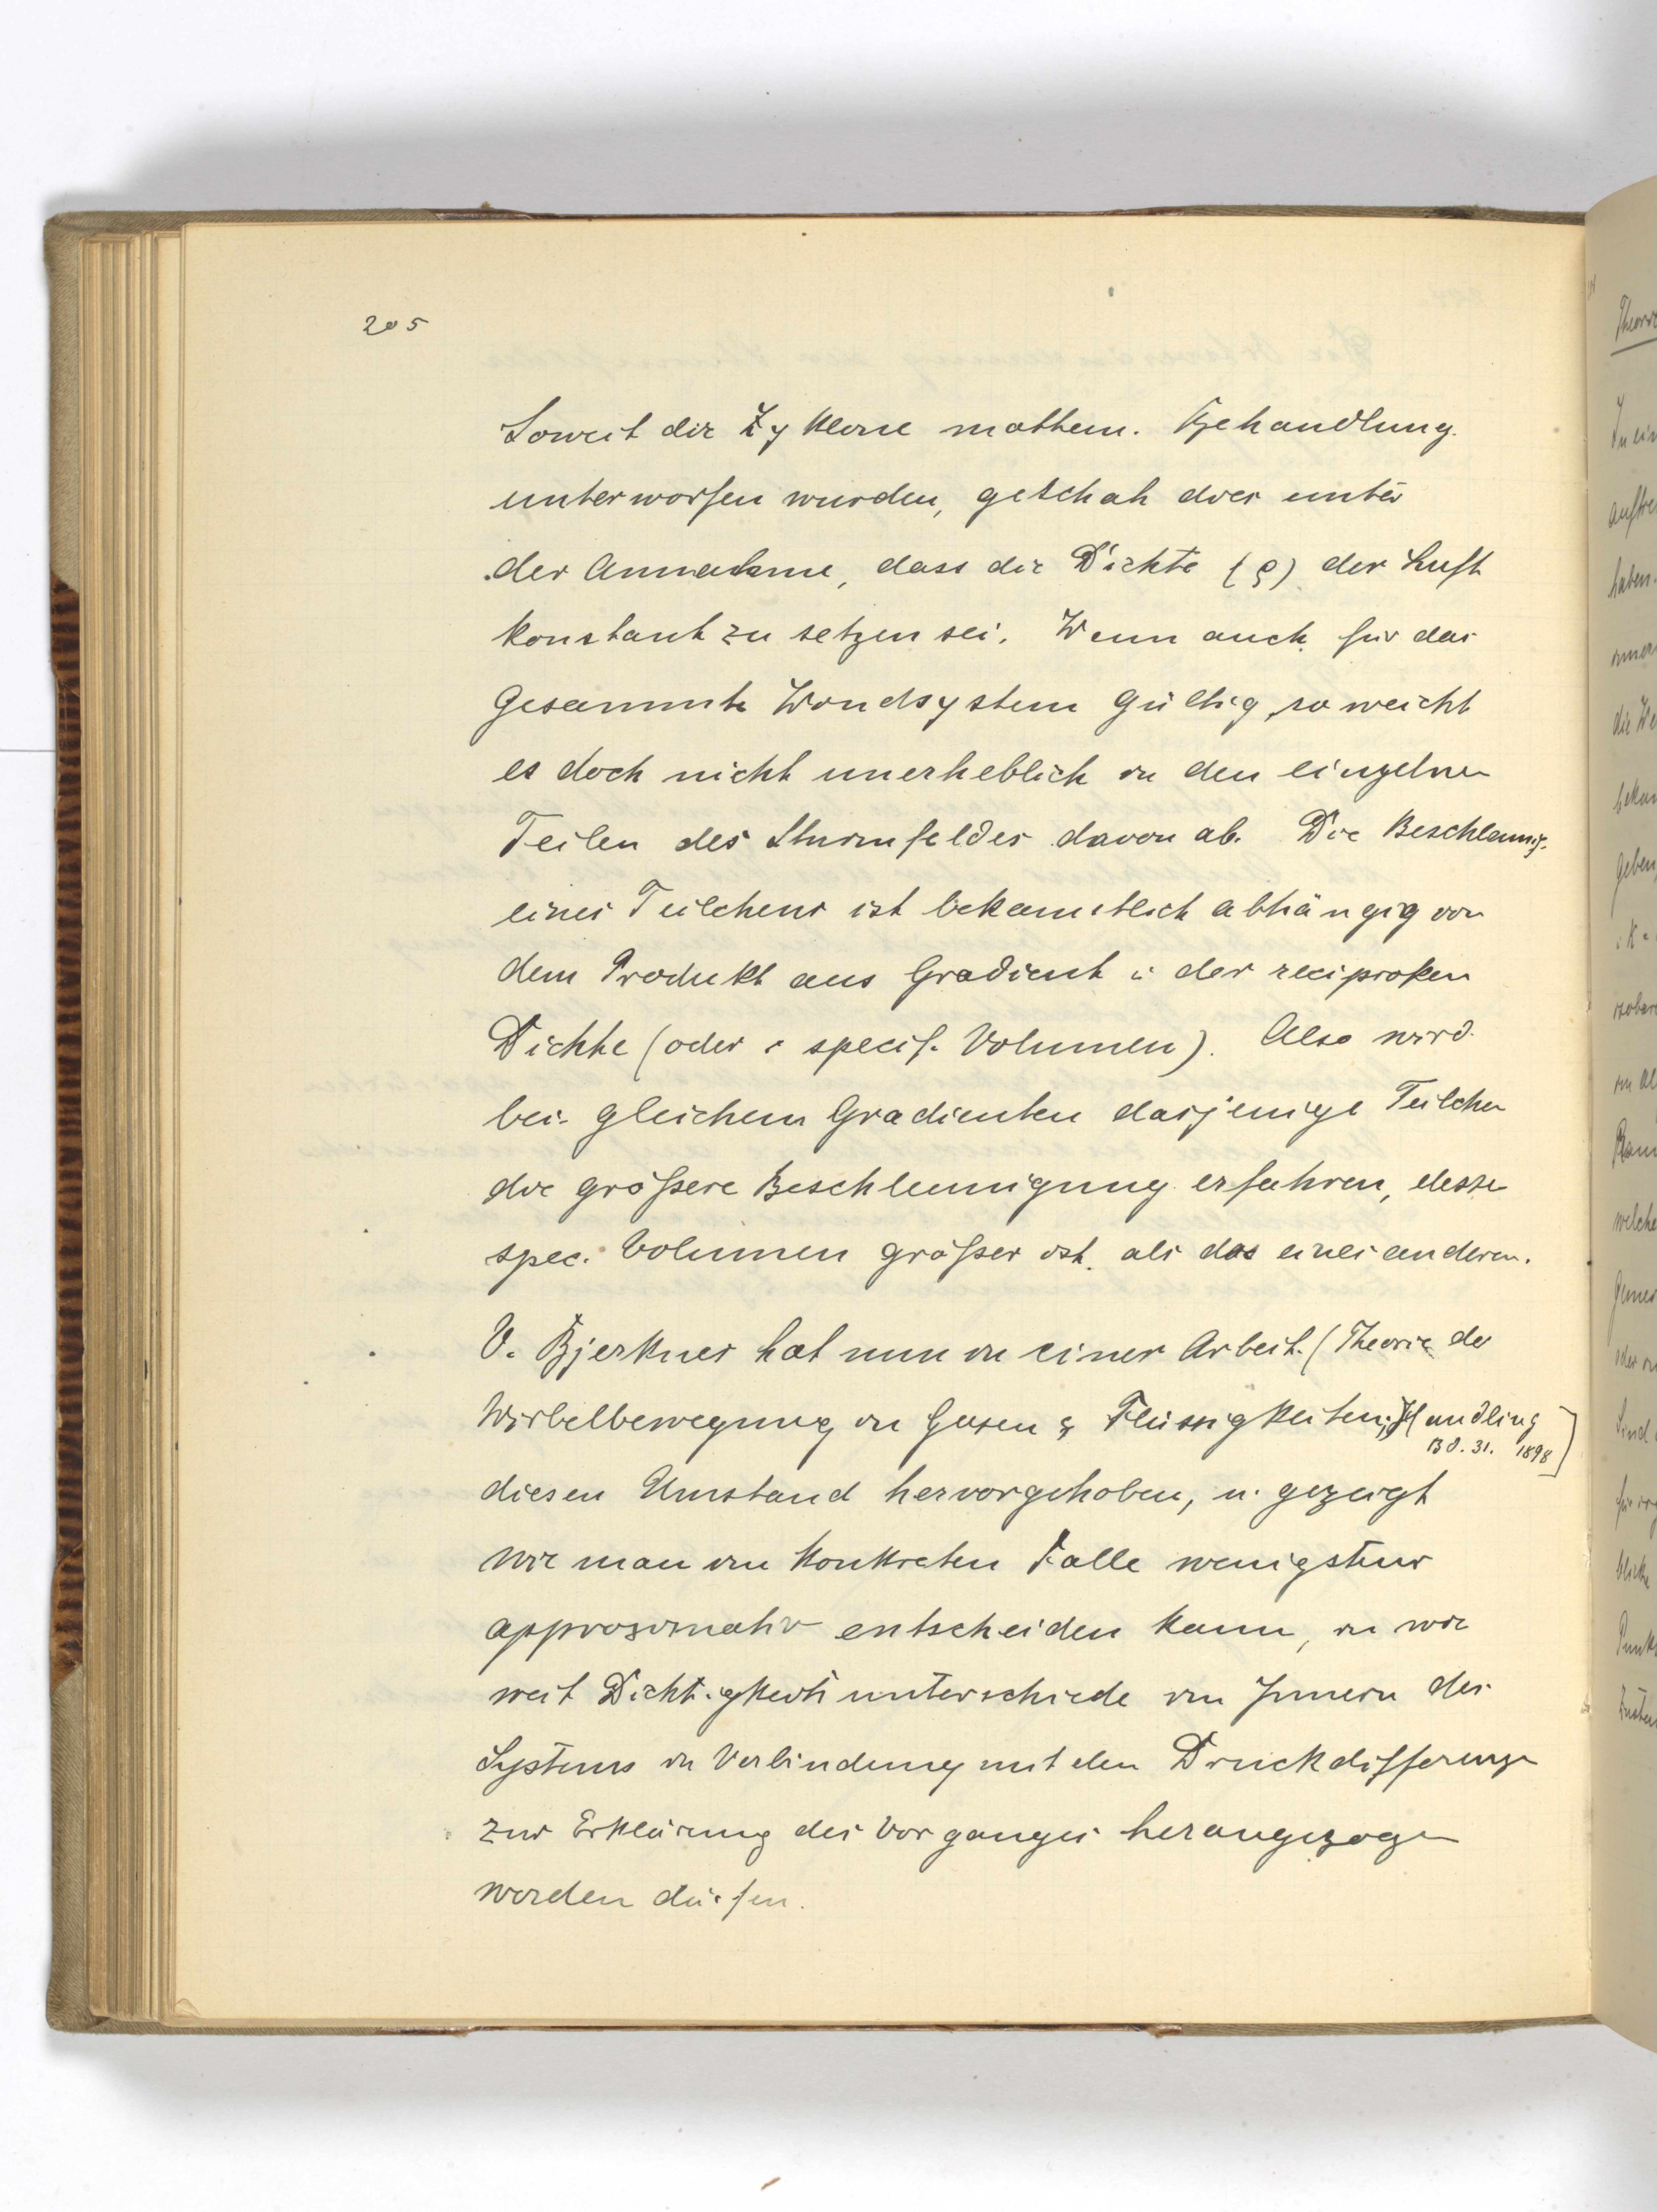 205
Soweit die Zyklone mathem. Behandlung
unterworfen wurden, geschah dies unter
der Annahme, dass die Dichte (ρ) der Luft
konstant zu setzen sei. Wenn auch für das
Gesammte Windsystem gültig, so weicht
es doch nicht unerheblich in den einzelnen
Teilen des Sturmfeldes davon ab. Die Beschleunig.
eines Teilchens ist bekanntlich abhängig von
dem Produkt aus Gradient u der reciproken
Dichte (oder specif. Volumen). Also wird
bei gleichem Gradienten dasjenige Teilchen
die größere Beschleunigung erfahren, dessen
spec. Volumen größer ist als das eines anderen.
V. Bjerknes hat nun in einer Arbeit (Theorie der
Wirbelbewegung in Gasen & Flüssigkeiten, Handling
Bd. 31. 1898]
diesen Umstand hervorgehoben, u. gezeigt
wie man im konkreten Falle wenigstens
approximativ entscheiden kann, in wie
weit Dichtigkeitsunterschiede im Innern des
Systems in Verbindung mit den Druckdifferenzen
zur Erklärung des Vorganges herangezogen
werden dürfen.